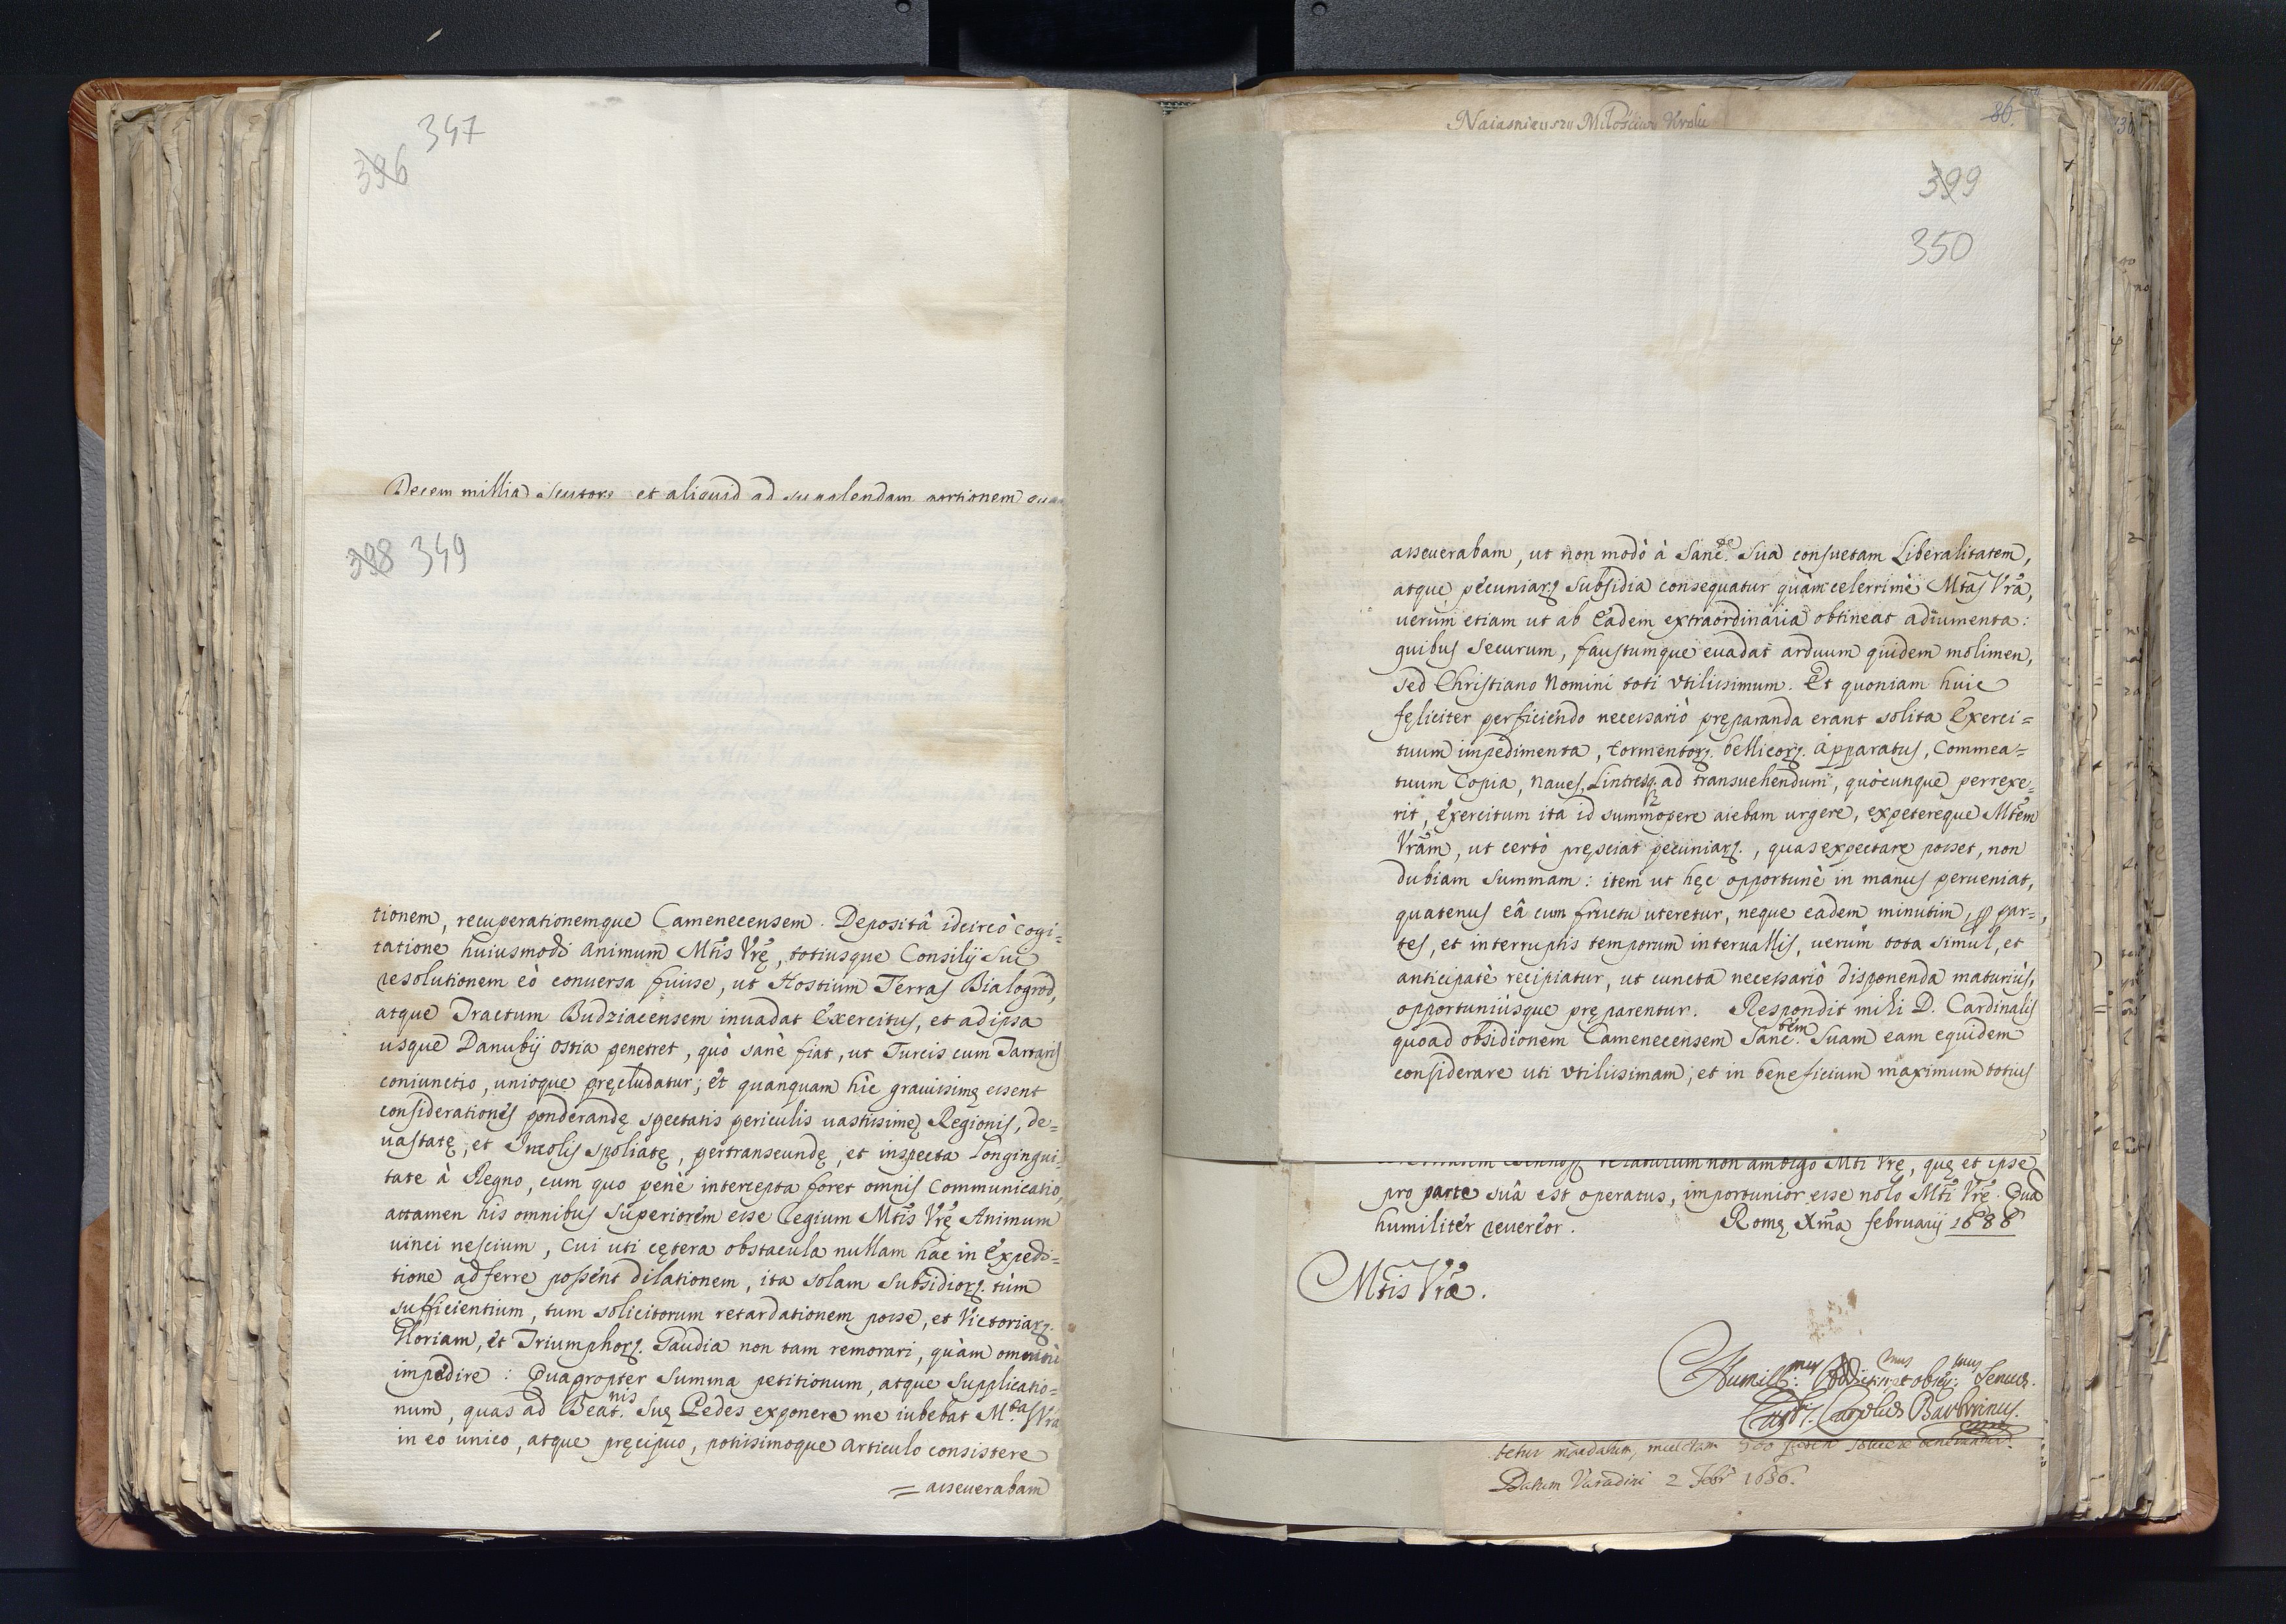 347
396
Decem millia Scutorę et aliquid ad supplendam portionem
398 349
tionem, recuperationemque Camenecensem. Depositâ idcircò cogi=
tatione huiusmodi animum Mtis Vrę, totiusque Consilij sui
resolutionem eò conuersa fuisse, ut Hostium Terras Bialogrod,
atque Tractum Budziacensem inuadat Exercitus, et ad ipsa
usque Danubij ostia penetret, quò sanè fiat, ut Turcis cum Tartaris
coniunctio, unioque pręcludatur; et quanquam hîc grauissimę essent
considerationes ponderandę spectatis periculis uastissimę Regionis, de=
uastatę, et Incolis spoliatę, pertranseundę, et inspecta longinqui=
tate à Regno, cum quo penè intercepta foret omnis communicatio,
attamen his omnibus superiorem esse Regium Mtis Vrę Animum
uinci nescium, cui uti cętera obstacula nullam hac in Expedi=
tione adferre possent dilationem, ita solam subsidiorę. tùm
sufficientium, tum solicitorum retardationem posse, et Victoriarę.
Gloriam, et Triumphorę. Gaudia non tam remorari, quàm omninò
impedire: Quapropter summa petitionum, atque supplicatio=
num, quas ad Beat.nis Suę Pedes exponere me iubebat M.tas Vra
in eo unico, atque pręcipuo, potissimoque articulo consistere
= asseuerabam
Naiasnieyszy Miłosciwy Krolu
86.
399
350
asseuerabam, ut non modò à Sanc.te Sua consuetam Liberalitatem,
atque pecuniarę subsidia consequatur quàm celerrimè Mtas Vra,
uerùm etiam ut ab Eadem extraordinaria obtineat adiumenta:
quibus securum, faustumque euadat arduum quidem molimen,
sed Christiano Nomini toti vtilissimum. Et quoniam huic
fęliciter perficiendo necessariò pręparanda erant solita Exerci=
tuum impedimenta, tormentorę. bellicorę. apparatus, Commea=
tuum Copia, naues, Lintresq. ad transuehendum, quòcunque perrexe=
rit, Exercitum ita id summopere aiebam urgere, expetereque Mtem
Vram, ut certò pręsciat pecuniarę., quas expectare posset, non
dubiam summam: item ut hęc opportunè in manus perueniat,
quatenus eâ cum fructu uteretur, neque eadem minutim, ꝑ par=
tes, et interruptis temporum interuallis, uerùm tota simul, et
anticipatè recipiatur, ut cuncta necessariò disponenda maturiùs,
opportuniùsque pręparentur. Respondit mihi D. Cardinalis
quoad obsidionem Camenecensem Sanc.tem Suam eam equidem
considerare uti vtilissimam, et in beneficium maximum totius
relaturum non ambigo Mti Vrę, quę et ipse
pro parte suâ est operatus, importunior esse nolo Mti Vrę. Quâ
humilitèr reuereor. Romę Xma februarij 1686
Mtis Vrę.
Humill:mus Addictiss:mus et obseq:mus Seruus.
Card. Carolus Barberinus.
tetur mandatum, mulctam 500
Datum Varadini 2 Febr 1686.